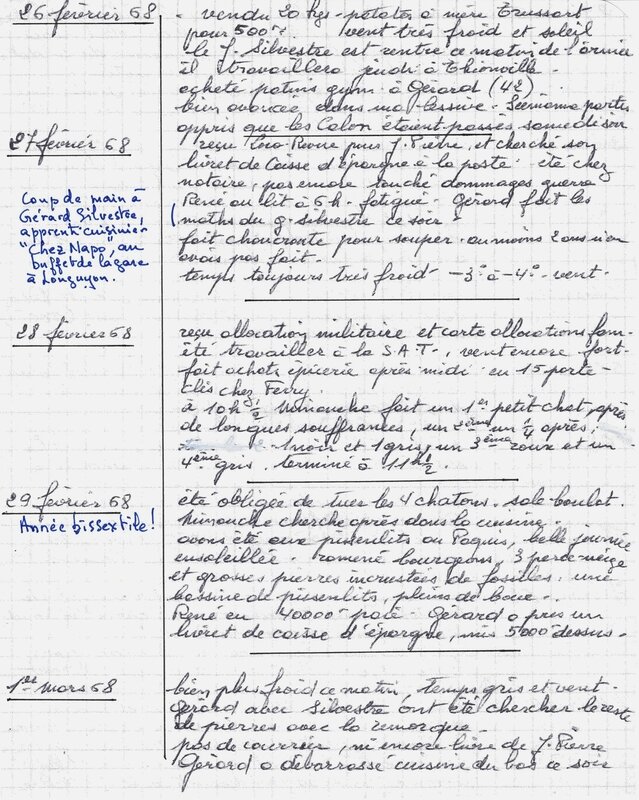 26 février 68
- vendu 20 kgs - patates à mère Trussart
pour 500f. vent très froid et soleil
le J. Silvestre est rentré ce matin de l'armée
il travaillera jeudi à Thionville -
acheté patins gym à Gérard (42)
bien avancée dans ma lessive.
appris que les Colon étaient passés samedi soir
27 février 68
reçu pour J. Pierre, et cherché son
livret de Caisse d'épargne à la poste. été chez
notaire, pas encore touché dommages guerre
René au lit à 6h. fatigué. Gérard fait les
maths du g. Silvestre ce soir -
fait choucroute pour souper. au moins 2 ans n'en
avais pas fait.
temps toujours très froid - -3° à -4° - vent -
Coup de main à
Gérard Silvestre,
apprenti cuisinier
"Chez Napo", au
buffet de la gare
à Longuyon.
28 février 68
reçu allocation militaire et carte allocations fam-
été travailler à la S.A.T., vent encore fort -
fait achats épicerie après midi en 15 porte-
clés chez Ferry.
à 10h 1/2 Minouche fait un 1er petit chat, après
de longues souffrances, un 2ème un 1/4 après,
1 noir et 1 gris, un 3ème roux et un
4ème gris, terminé à 11h 1/2.
29 février 68
Année bissextile !
été obligée de tuer les 4 chatons. sale boulot.
Minouche cherche après dans la cuisine -
avons été aux pissenlits au Paquis, belle journée
ensoleillée. ramené bourgeons, 3 perce-neige
et grosses pierres incrustées de fossiles. une
bassine de pissenlits, pleins de boue -
René eu 40000f paie - Gérard a pris un
livret de caisse d'épargne, mis 5000f dessus -
1er mars 68
bien plus froid ce matin, temps gris et vent -
Gérard avec Silvestre ont été chercher le reste
de pierres avec la remorque -
pas de courrier, ni encore de J. Pierre
Gérard a débarrassé cuisine du bas ce soir